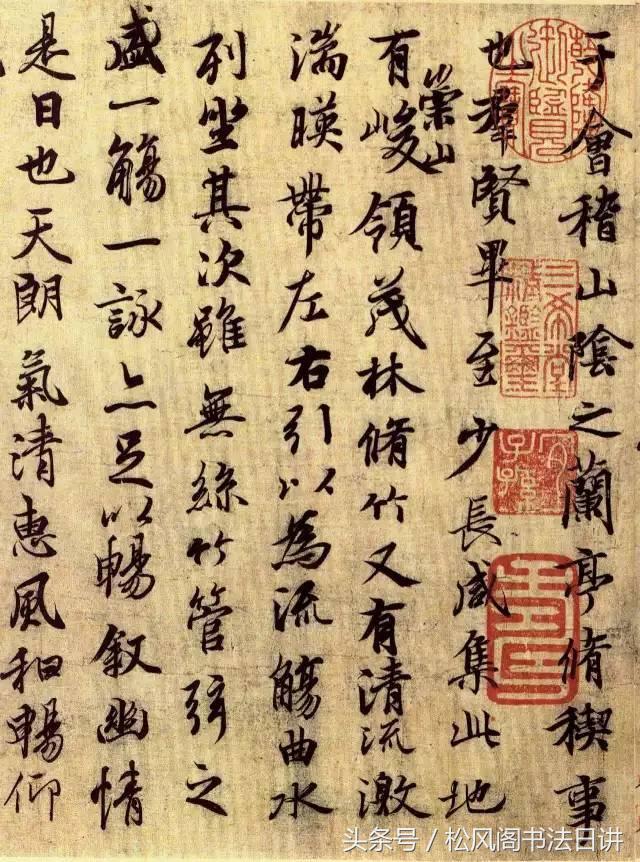 于會稽山陰之蘭亭脩稧事
也羣賢畢至少長咸集此地
有崇山峻領茂林脩竹又有清流激
湍暎帶左右引以為流觴曲水
列坐其次雖無絲竹管弦之
盛一觴一詠亦足以暢叙幽情
是日也天朗氣清惠風和暢仰
三希堂精鑑璽
宜子孫
头条号/松风阁书法日讲